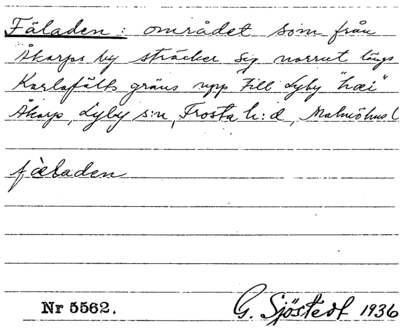 Fäladen: området som från
Åkarps by sträcker sig norrut längs
Karlsfälts gräns upp till Lyby "hæi"
Åkarp, Lyby s:n, Frosta h:d, Malmöhus l
fàladen
Nr 5562. G. Sjöstedt 1936